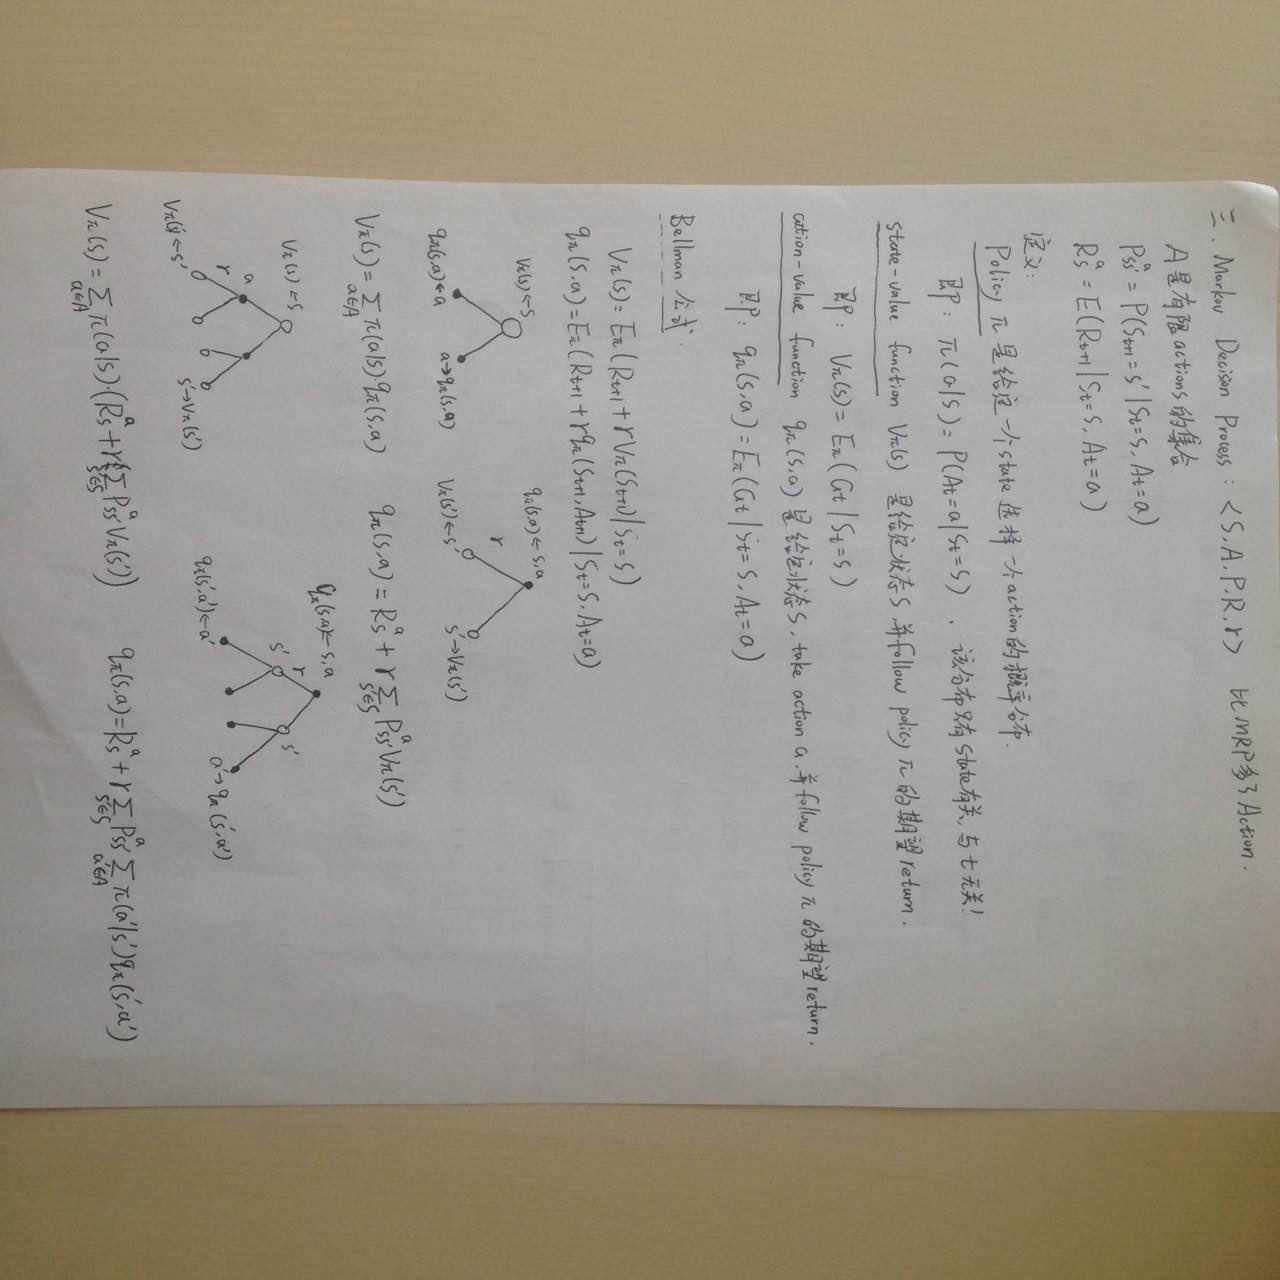 三. Markov Decision Process: <S, A, P, R, r> 比MRP多了Action.
A是有限actions的集合
Pss'^a = P(St+1=s' | St=s, At=a)
Rs^a = E(Rt+1 | St=s, At=a)
定义:
Policy π 是给定一个state选择一个action的概率分布.
即: π(a|s) = P(At=a | St=s) . 该分布只有state有关, 与t无关!
state-value function Vπ(s) 是给定状态s, 并follow policy π 的期望return.
即: Vπ(s) = Eπ(Gt | St=s)
action-value function qπ(s,a) 是给定状态s, take action a, 并follow policy π 的期望return.
即: qπ(s,a) = Eπ(Gt | St=s, At=a)
Bellman 公式.
Vπ(s) = Eπ(Rt+1 + rVπ(St+1) | St=s)
qπ(s,a) = Eπ(Rt+1 + rqπ(St+1, At+1) | St=s, At=a)
Vπ(s) ← s
qπ(s,a) ← a a → qπ(s,a)
qπ(s,a) ← s,a
r
Vπ(s') ← s' s' → Vπ(s')
Vπ(s) = Σa∈A π(a|s) qπ(s,a) qπ(s,a) = Rs^a + r Σs'∈S Pss'^a Vπ(s')
Vπ(s) ← s
a
r
Vπ(s') ← s' s' → Vπ(s')
qπ(s,a) ← s,a
r
s' s'
qπ(s',a') ← a' a' → qπ(s',a')
Vπ(s) = Σa∈A π(a|s)·(Rs^a + r Σs'∈S Pss'^a Vπ(s')) qπ(s,a) = Rs^a + r Σs'∈S Pss'^a Σa'∈A π(a'|s') qπ(s',a')